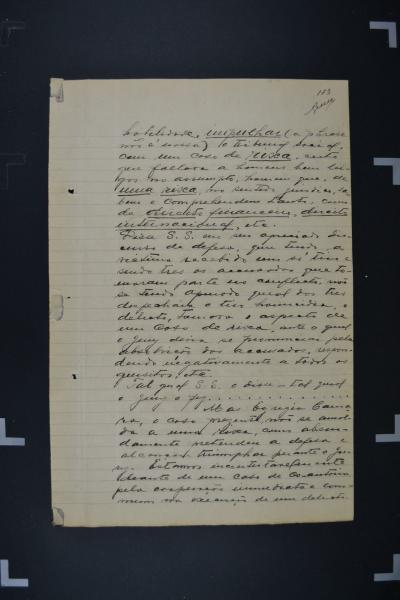 103
habilidade, impulhar (a phrase
não é nossa) o tribunal social,
com um caso de rixa, certo
que fallava a homens bem lei-
gos no assumpto, homens que, de
uma rixa, no sentido juridico, sa-
bem e comprehendem tanto, como
de direito financeiro, direito
internacional, etc.
Fixa S. S. em seu apreciado dis-
curso de defesa, que tendo a
victima recebido um só tiro e
sendo tres os accusados que to-
maram parte no conflicto, não
se tendo apurado qual dos tres
desfechara o tiro homicida, o
delicto, tomava o aspecto de
um caso de rixa, ante o qual
o jury devia se pronunciar pela
absolvição dos accusados, respon-
dendo negativamente a todos os
quesitos, etc.
Tal qual S. S. o disse - tal qual
o jury o fez
Mas Egregia Cama-
ra, o caso presente não se amol-
da a uma rixa como absur-
damente pretendeu a defesa e
alcançou triumphar perante o ju-
ry. Estamos incontestavelmente
deante de um caso de co-autoria
pela cooperação immediata e com-
mum na execução de um delicto